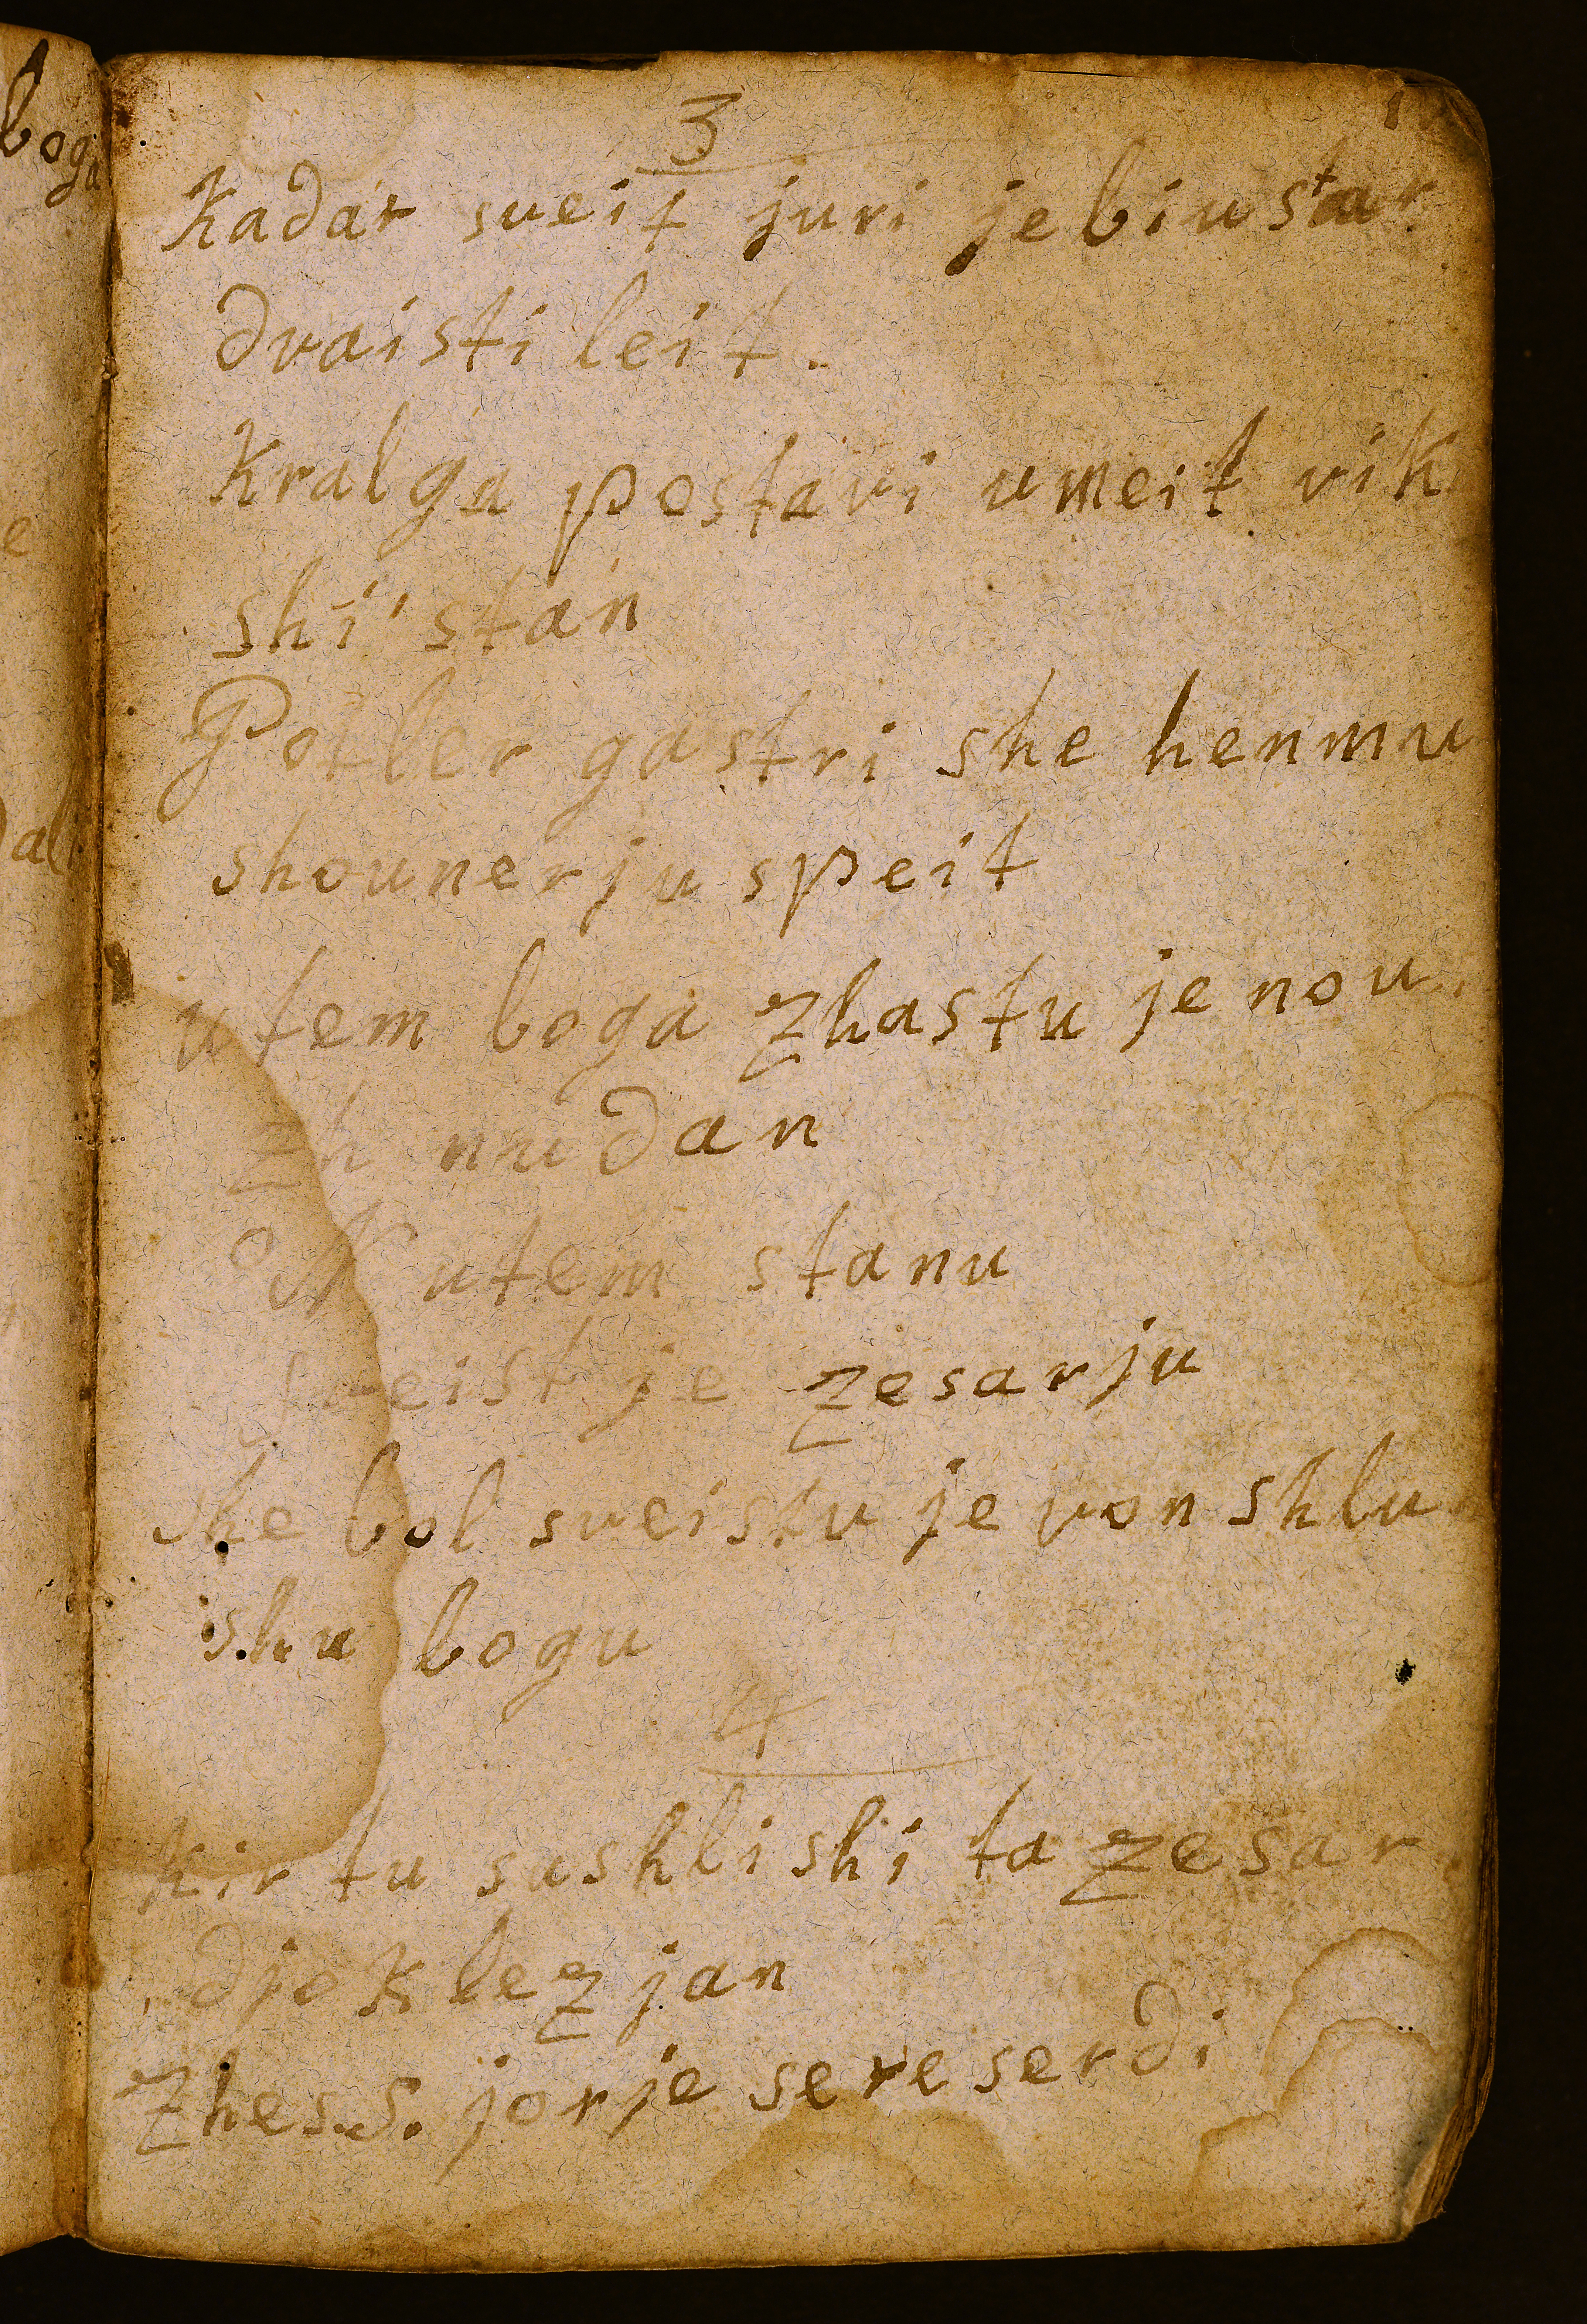 boga
3
kadar sveit juri je biu star
dvaisti leit.
kral ga postavi umeit vik
shi stan
Potler gastri she henmu
shounerju speit
utem boga zhastu je nou
zh nu dan
utem stanu
sveist je zesarju
she bol sveistu je von shlu
shu bogu
4
kir tu sashlishi ta zesar
djoklezjan
zhes S. jorje sere serdi